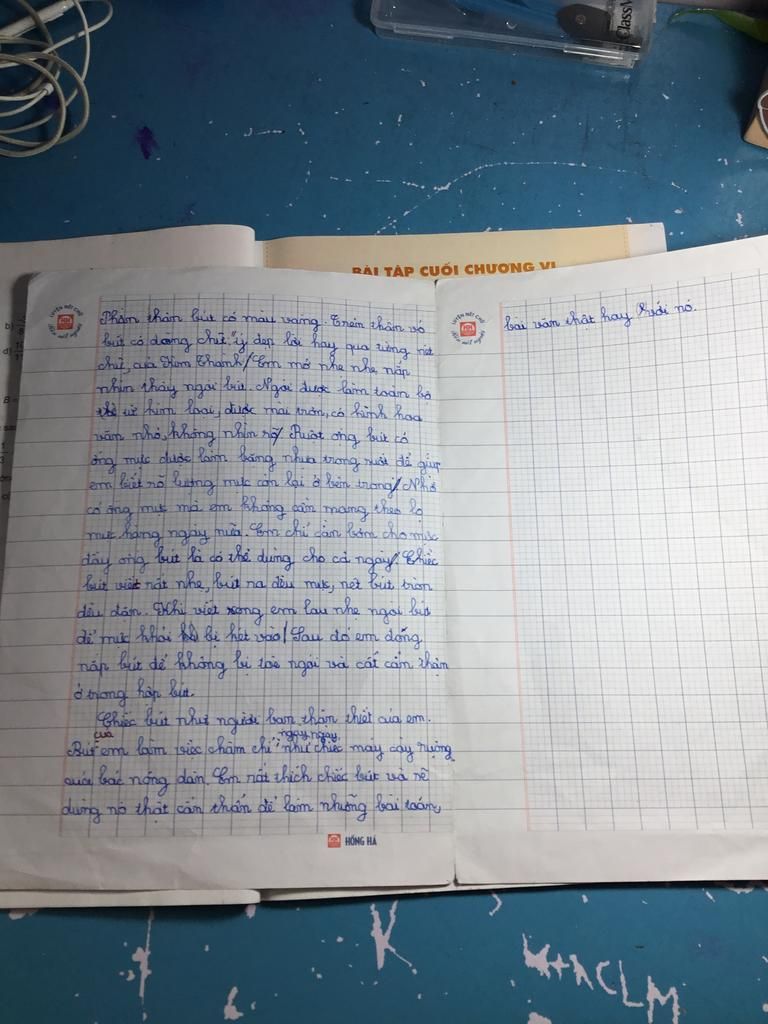 ClassM
BÀI TẬP CUỐI CHƯƠNG VI
b)
d)
LUYỆN NÉT CHỮ
Phần thân bút có màu vàng. Trên thân vỏ
bút có dòng chữ "ý đẹp lời hay qua từng nét
chữ, của Kim Thành/ Em mở nhẹ nhẹ nắp
nhìn thấy ngòi bút. Ngòi được làm toàn bộ
từ kim loại, được mài tròn, có hình hoa
văn nhỏ, không nhìn rõ/ Ruột ống bút có
ống mực được làm bằng nhựa trong suốt để giúp
em biết rõ lượng mực còn lại ở bên trong/ Nhờ
có ống mực mà em không cần mang theo lọ
mực hàng ngày nữa. Em chỉ cần bơm cho mực
đầy ống bút là có thể dùng cho cả ngày/. Chiếc
bút viết rất nhẹ, bút ra đều mực, nét bút tròn
đều đặn. Khi viết xong em lau nhẹ ngòi bút
để mực khỏi bị hét vào/ Sau đó em đóng
nắp bút để không bị toè ngòi và cất cẩn thận
ở trong hộp bút.
Chiếc bút như người bạn thân thiết của em.
của ngày ngày
Bút em làm việc chăm chỉ như chiếc máy cày ruộng
của bác nông dân. Em rất thích chiếc bút và sẽ
dùng nó thật cẩn thận để làm những bài toán,
HỒNG HÀ
LUYỆN NÉT CHỮ
bài văn thật hay với nó.
K
K+ACLM